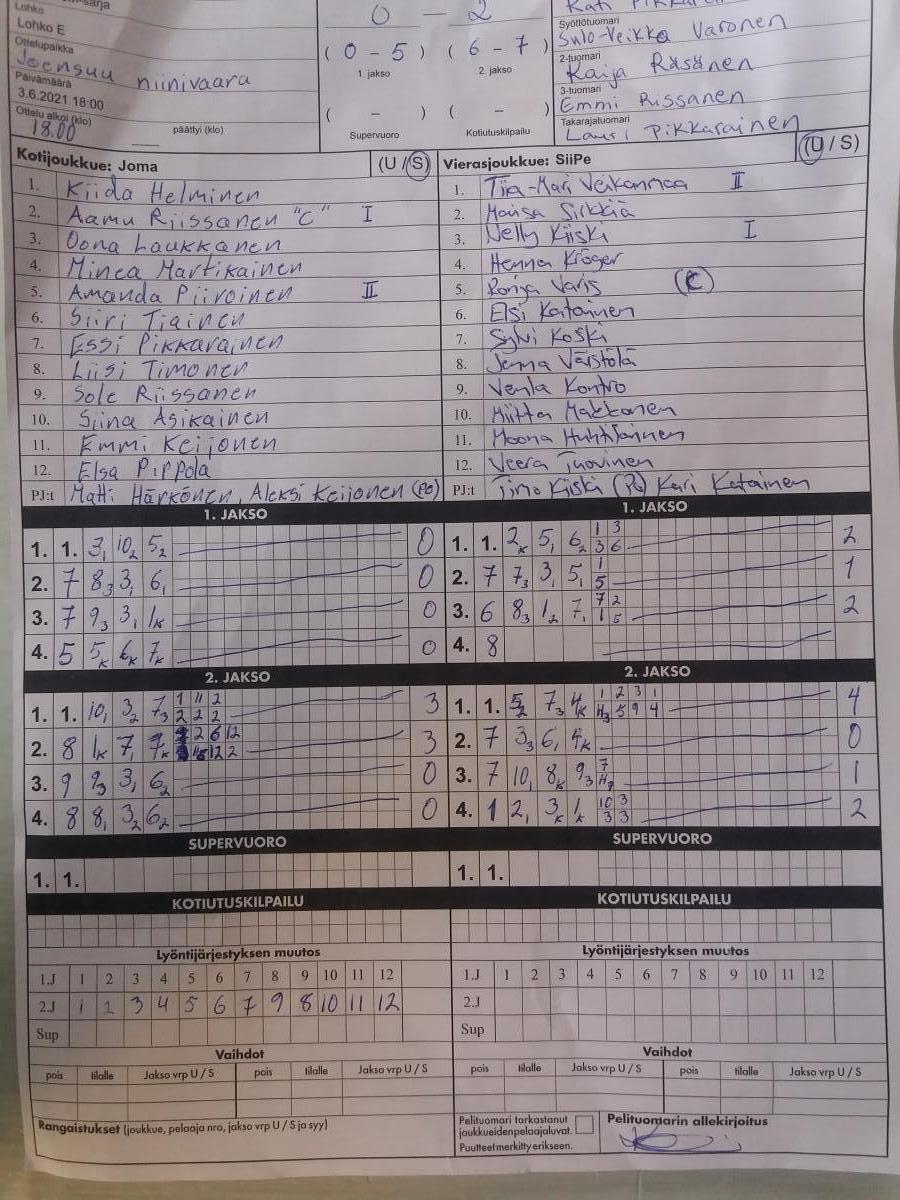 Lohko
Lohko E
Ottelupaikka
Joensuu niinivaara
Päivämäärä
3.6.2021 18:00
Ottelu alkoi (klo) päättyi (klo)
18.00
0 — 2
( 0 - 5 ) ( 6 - 7 )
1. jakso 2. jakso
( - ) ( - )
Supervuoro Kotiutuskilpailu
Syöttötuomari
Sulo-Veikka Varonen
2-tuomari
Kaija Räsänen
3-tuomari
Emmi Rissanen
Takarajatuomari
Lauri Pikkarainen
Kotijoukkue: Joma (U / S)
1. Kiida Helminen
2. Aamu Riissanen "C" I
3. Oona Laukkanen
4. Minea Martikainen
5. Amanda Piiroinen II
6. Siiri Tiainen
7. Essi Pikkarainen
8. Liisi Timonen
9. Sole Riissanen
10. Siina Asikainen
11. Emmi Keijonen
12. Elsa Pippola
PJ:t Matti Härkönen, Aleksi Keijonen (PO)
Vierasjoukkue: SiiPe (U / S)
1. Tiia-Mari Veikanmaa II
2. Marisa Sirkkiä
3. Nelly Kiiski I
4. Henna Kröger
5. Ronja Varis (C)
6. Elsi Katainen
7. Sylvi Koski
8. Jenna Värstölä
9. Venla Kontro
10. Miitta Makkonen
11. Moona
12. Veera Tuovinen
PJ:t Timo Kiiski (PO) Kari Katainen
1. JAKSO
1. 1. 3, 10₂ 5₂ 0
2. 7 8₃ 3, 6, 0
3. 7 9₃ 3, 1k 0
4. 5 5k 6k 7k 0
1. JAKSO
1. 1. 2k 5, 6₂ 1 3 2
3 6
2. 7 7₃ 3, 5, 1 1
5
3. 6 8₃ 1₂ 7, 7 2 2
1 5
4. 8
2. JAKSO
1. 1. 10, 3₂ 7₃ 1 11 2 3
2 2 2
2. 8 1k 7, 2 6 12 3
12 2
3. 9 9₃ 3, 6₂ 0
4. 8 8, 3₂ 6₂ 0
2. JAKSO
1. 1. 7₃ 4k 1 2 3 1 4
5 9 4
2. 7 3₃ 6, 4k 0
3. 7 10, 8k 9₃ 7 1
4. 1 2, 3k 1k 10 3 2
3 3
SUPERVUORO
1. 1.
SUPERVUORO
1. 1.
KOTIUTUSKILPAILU
KOTIUTUSKILPAILU
Lyöntijärjestyksen muutos
1.J 1 2 3 4 5 6 7 8 9 10 11 12
2.J 1 2 3 4 5 6 7 9 8 10 11 12
Sup
Lyöntijärjestyksen muutos
1.J 1 2 3 4 5 6 7 8 9 10 11 12
2.J
Sup
Vaihdot
pois tilalle Jakso vrp U / S pois tilalle Jakso vrp U / S
Vaihdot
pois tilalle Jakso vrp U / S pois tilalle Jakso vrp U / S
Rangaistukset (joukkue, pelaaja nro, jakso vrp U / S ja syy)
Pelituomari tarkastanut
joukkueidenpelaajaluvat.
Puutteet merkitty erikseen.
Pelituomarin allekirjoitus